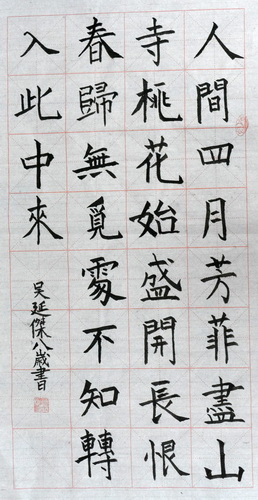 人間四月芳菲盡山
寺桃花始盛開長恨
春歸無覓處不知轉
入此中來
吳延傑八歲書